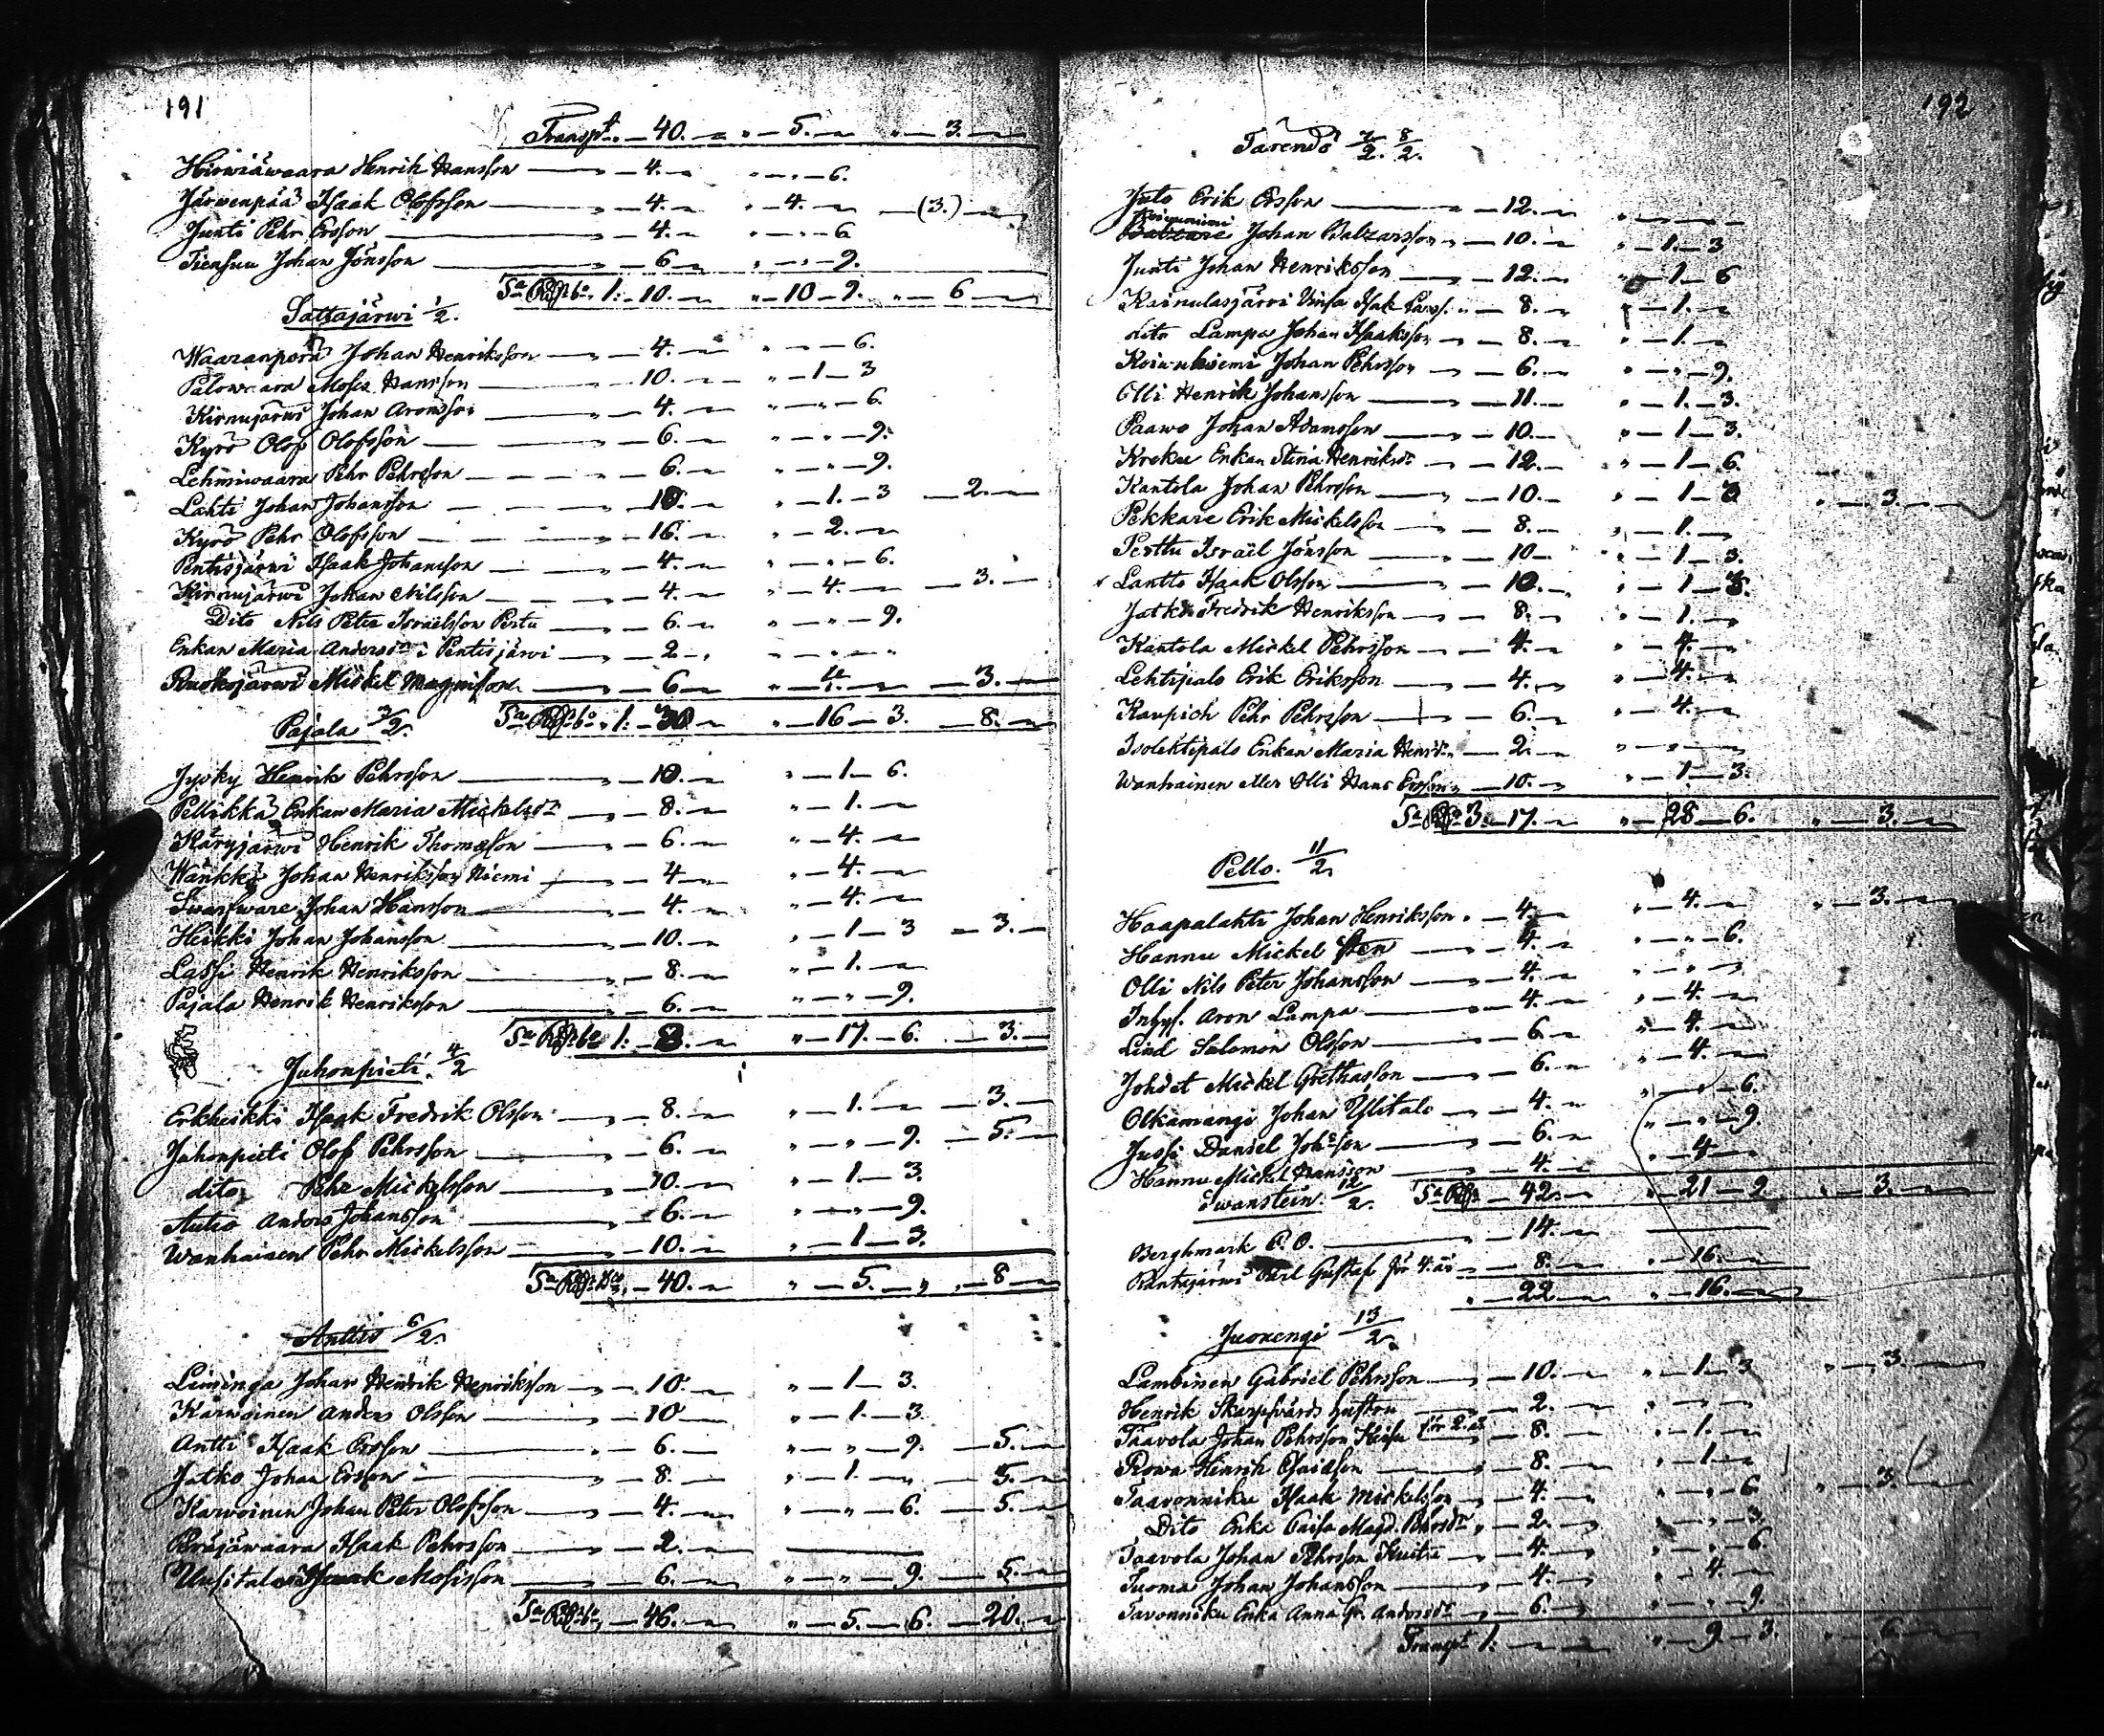 191
Transpt. — 40. — " — 5. — " — 3. —
Hirwiäwaara Henrik Hansson — " — 4. — " — " — 6.
Järwenpää Isaak Olofsson — " — 4. — " — 4. — — (3.) —
Junti Pehr Ersson — " — 4. — " — " — 6
Tiensuu Johan Jönsson — " — 6 — " — " — 9.
Sa Rdr bo 1: — 10. — " — 10 — 9. " — 6 —
Sattajärwi 1/2.
Waaranperä Johan Henriksson — " — 4. — " — " — 6.
Palowaara Moses Hansson — " — 10. — " — 1 — 3
Kirnujärwi Johan Aronsson — " — 4. — " — " — 6.
Kyrö Olof Olofsson — " — 6. — " — " — 9.
Lehmiwaara Pehr Pehrsson — " — 6. — " — " — 9.
Lahti Johan Johansson — " — 10. — " — 1. — 3 — 2. —
Kyrö Pehr Olofsson — " — 16. — " — 2. —
Pentisjärwi Isaak Johansson — " — 4. — " — " — 6.
Kirnujärwi Johan Nilsson — " — 4. — " — 4. — — 3. —
Dito Nils Peter Israelsson Pertu — " — 6. — " — " — 9.
Enkan Maria Andersdr i Pentisjärwi — " — 2 — " — " — "
Ruokojärwi Mickel Magnisson — " — 6 — " — 4. — — 3. —
Pajala 3/2. Sa Rdr bo " 1: — 30 — " — 16 — 3. — 8. —
Jysky Henrik Pehrsson — " — 10. — " — 1 — 6.
Pellikkä Enkan Maria Mickelsdr — " — 8. — " — 1. —
Käryjärwi Henrik Thomasson — " — 6. — " — 4. —
Wänkkö Johan Henriksson Niemi — " — 4 — " — 4. —
Johan Hansson — " — 4. — " — 4. —
Heikki Johan Johansson — " — 10. — " — 1 — 3 — 3. —
Lassi Henrik Henriksson — " — 8. — " — 1. —
Pajala Henrik Henriksson — " — 6. — " — " — 9.
Sa Rdr bo 1: — 8. — " — 17. — 6. — 3. —
Juhonpieti. 4/2
Erkheikki Isaak Fredrik Olsson — " — 8. — " — 1. — — 3. —
Juhonpieti Olof Pehrsson — " — 6. — " — " — 9. — 5. —
dito Pehr Mickelsson — " — 10. — " — 1 — 3.
Autio Anders Johansson — " — 6. — " — " — 9.
Wanhainen Pehr Mickelsson — " — 10. — " — 1 — 3.
Sa Rdr bo — 40. — " — 5. — " — 8 —
Anttis 6/2.
Leininga Johan Henrik Henriksson — " — 10. — " — 1 — 3.
Karwoinen Anders Olsson — " — 10 — " — 1. — 3
Antti Isaak Ersson — " — 6. — " — " — 9. — 5. —
Jatko Johan Ersson — " — 8. — " — 1. — " — 5. —
Karwoinen Johan Peter Olofsson — " — 4. — " — " — 6. — 5. —
Peräjäwaara Isaak Pehrsson — " — 2. — —
Uusitalo Isaak Mosisson — " — 6. — " — " — 9. — 5. —
Sa Rdr bo — 46. — " — 5. — 6. — 20. —
192
Tärendö 7/2. 8/2.
Juto Erik Ersson — " — 12. — " —
Koijuniemi
Balzare Johan Balzarsson — " — 10. — " — 1 — 3
Junti Johan Henriksson — " — 12. — " — 1 — 6
Kainulasjärvi Vinsa Isak Larss. " — 8. — " — 1. —
dito Lampa Johan Isaksson — " — 8. — " — 1. —
Koijuniemi Johan Pehrsson — " — 6. — " — " — 9.
Olli Henrik Johansson — " — 11. — " — 1. — 3.
Paawo Johan Adamsson — " — 10. — " — 1 — 3.
Kreku Enkan Stina Henriksdr — " — 12. — " — 1 — 6.
Kantola Johan Pehrsson — " — 10. — " — 1 — 3 " — 3. —
Pekkare Erik Mickelsson — " — 8. — " — 1. —
Perttu Israël Jönsson — " — 10 — " — 1 — 3.
x Lantto Isaak Olsson — " — 10. — " — 1 — 3.
Jatko Fredrik Henriksson — " — 8. — " — 1. —
Kantola Mickel Pehrsson — " — 4. — " — 4. —
Lehtipalo Erik Eriksson — " — 4. — " — 4. —
Kaupich Pehr Pehrsson — " — 6. — " — 4. —
Isolehtipalo Enkan Maria Henrdr " — 2. — " — " — "
Wanhainen eller Olli Hans Ersson " — 10. — " — 1 — 3.
Sa Rdr 3. — 17. — " — 28 — 6. " — 3. —
Pello. 11/2.
Haapalahti Johan Henriksson " — 4. — " — 4. — " — 3. —
Hannu Mickel Sten — " — 4. — " — " — 6.
Olli Nils Peter Johansson — " — 4. — " — " — "
Inhys. Aron Lampa — " — 4. — " — 4. —
Lind Salomon Olsson — " — 6. — " — 4. —
Johdet Mickel Grethasson — " — 6. — " — 4. —
Olkamangi Johan Ylitalo — " — 4. — " — " — 6.
Jussi Daniel Johsson — " — 6. — " — " — 9.
Hannu Mickel Hansson — 4. — " — 4 —
Swanstein. 12/2. Sa Rdr — 42. — " — 21 — 9. " — 3. —
Berghmark C. O. — " — 14. — —
Rantajärwi Carl Gustaf för 4. år " — 8. — " — 16. —
" — 22 — " — 16. —
Juoxengi 13/2.
Lambinen Gabriel Pehrsson — " — 10. — " — 1 — 3 " — 3. —
Henrik Skarpfvärds hustru — " — 2. — " — " — "
Taavola Johan Pehrsson för 2. år " — 8. — " — 1. —
Rowa Hinrik Esaiasson — " — 8. — " — 1. —
Taavonniku Isaak Mickelsson — " — 4. — " — " — 6 " — 3. —
Dito Enka Caisa Magd. Pehrsdr " — 2. — " — " — 3.
Taavola Johan Pehrsson — " — 4. — " — " — 6.
Tuoma Johan Johansson — " — 4. — " — 4. —
Tavonniku Enka Anna Gr. Andersdr — 6. — " — " — 9.
Transpt 1: — " — 9 — 3. " — 6. —